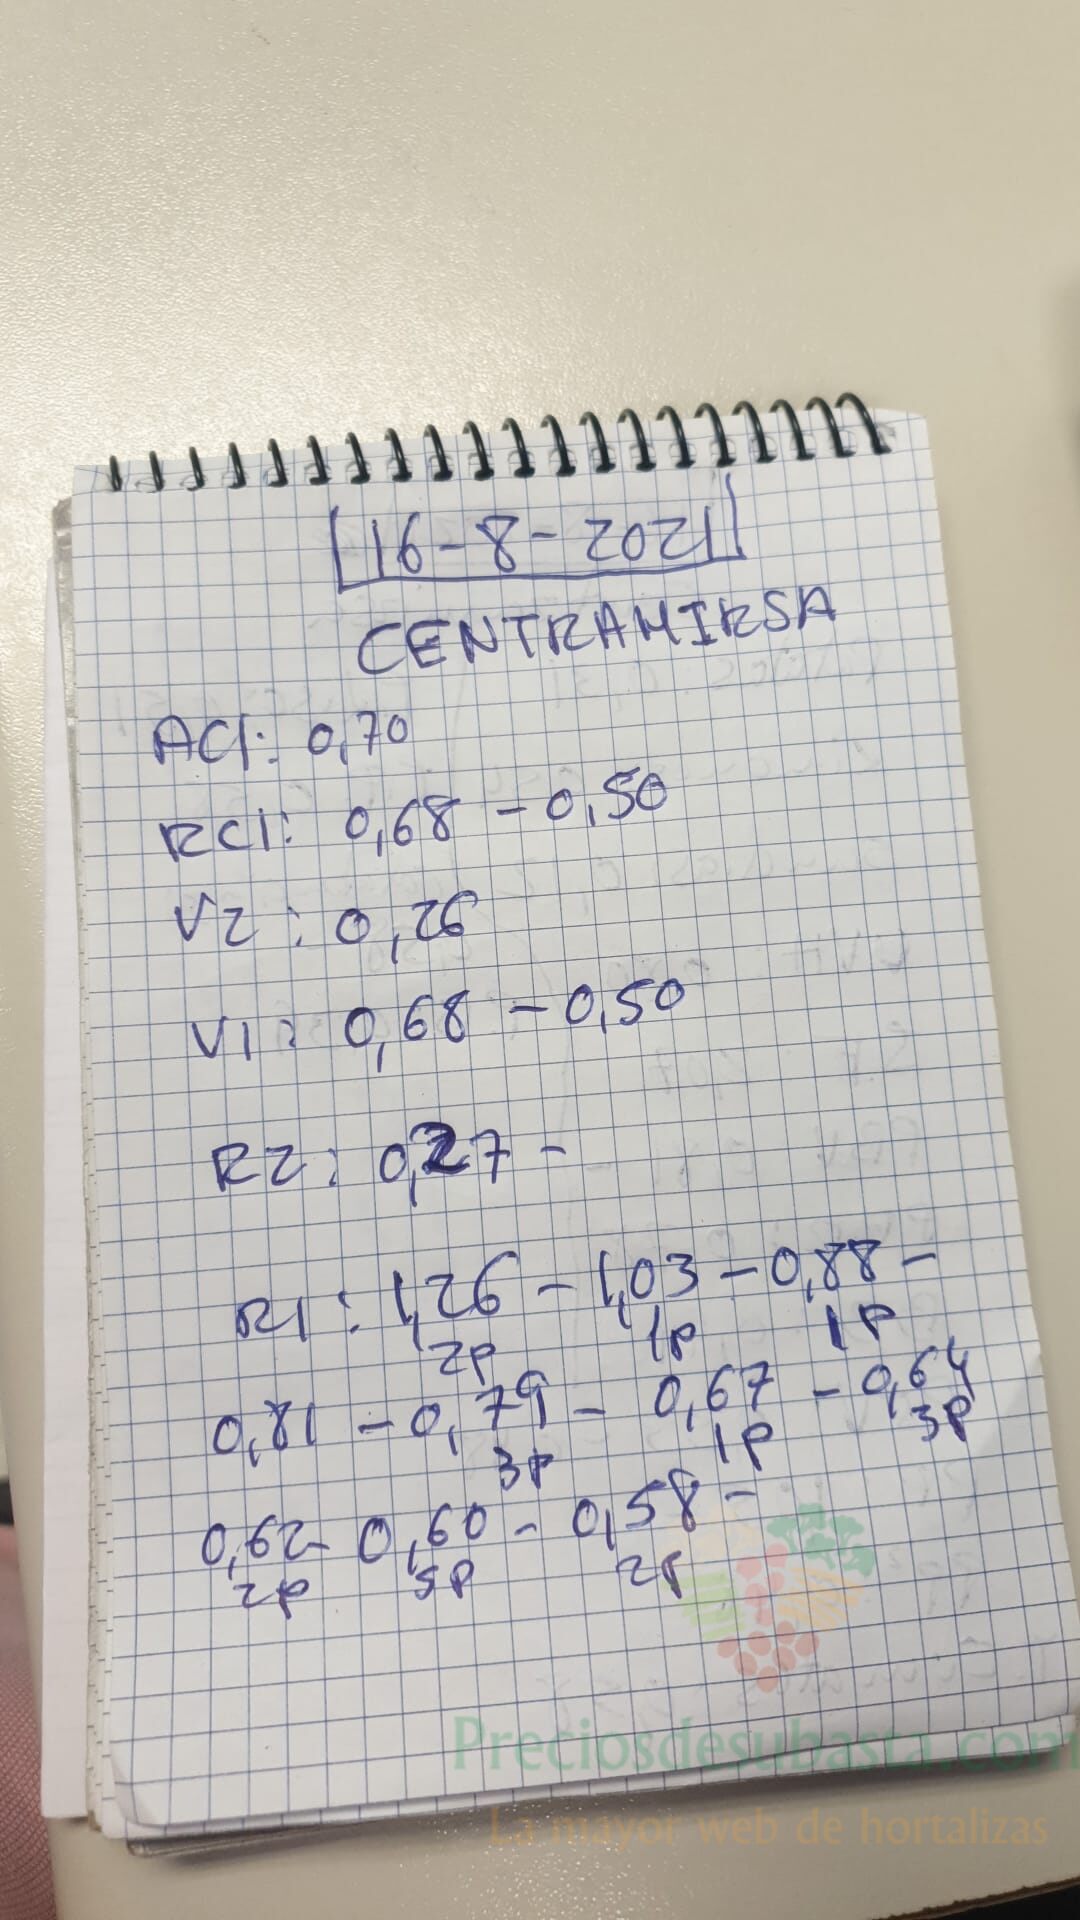 16-8-2021
CENTRAMIRSA
AC1: 0,70
RC1: 0,68 - 0,50
V2 : 0,26
V1: 0,68 - 0,50
R2: 0,27 -
R1: 1,26 - 1,03 - 0,88 -
2P 1P 1P
0,81 - 0,79 - 0,67 - 0,64
3P 1P 3P
0,62 - 0,60 - 0,58 -
2P 5P 2P
Preciosdesubasta.com
La mayor web de hortalizas